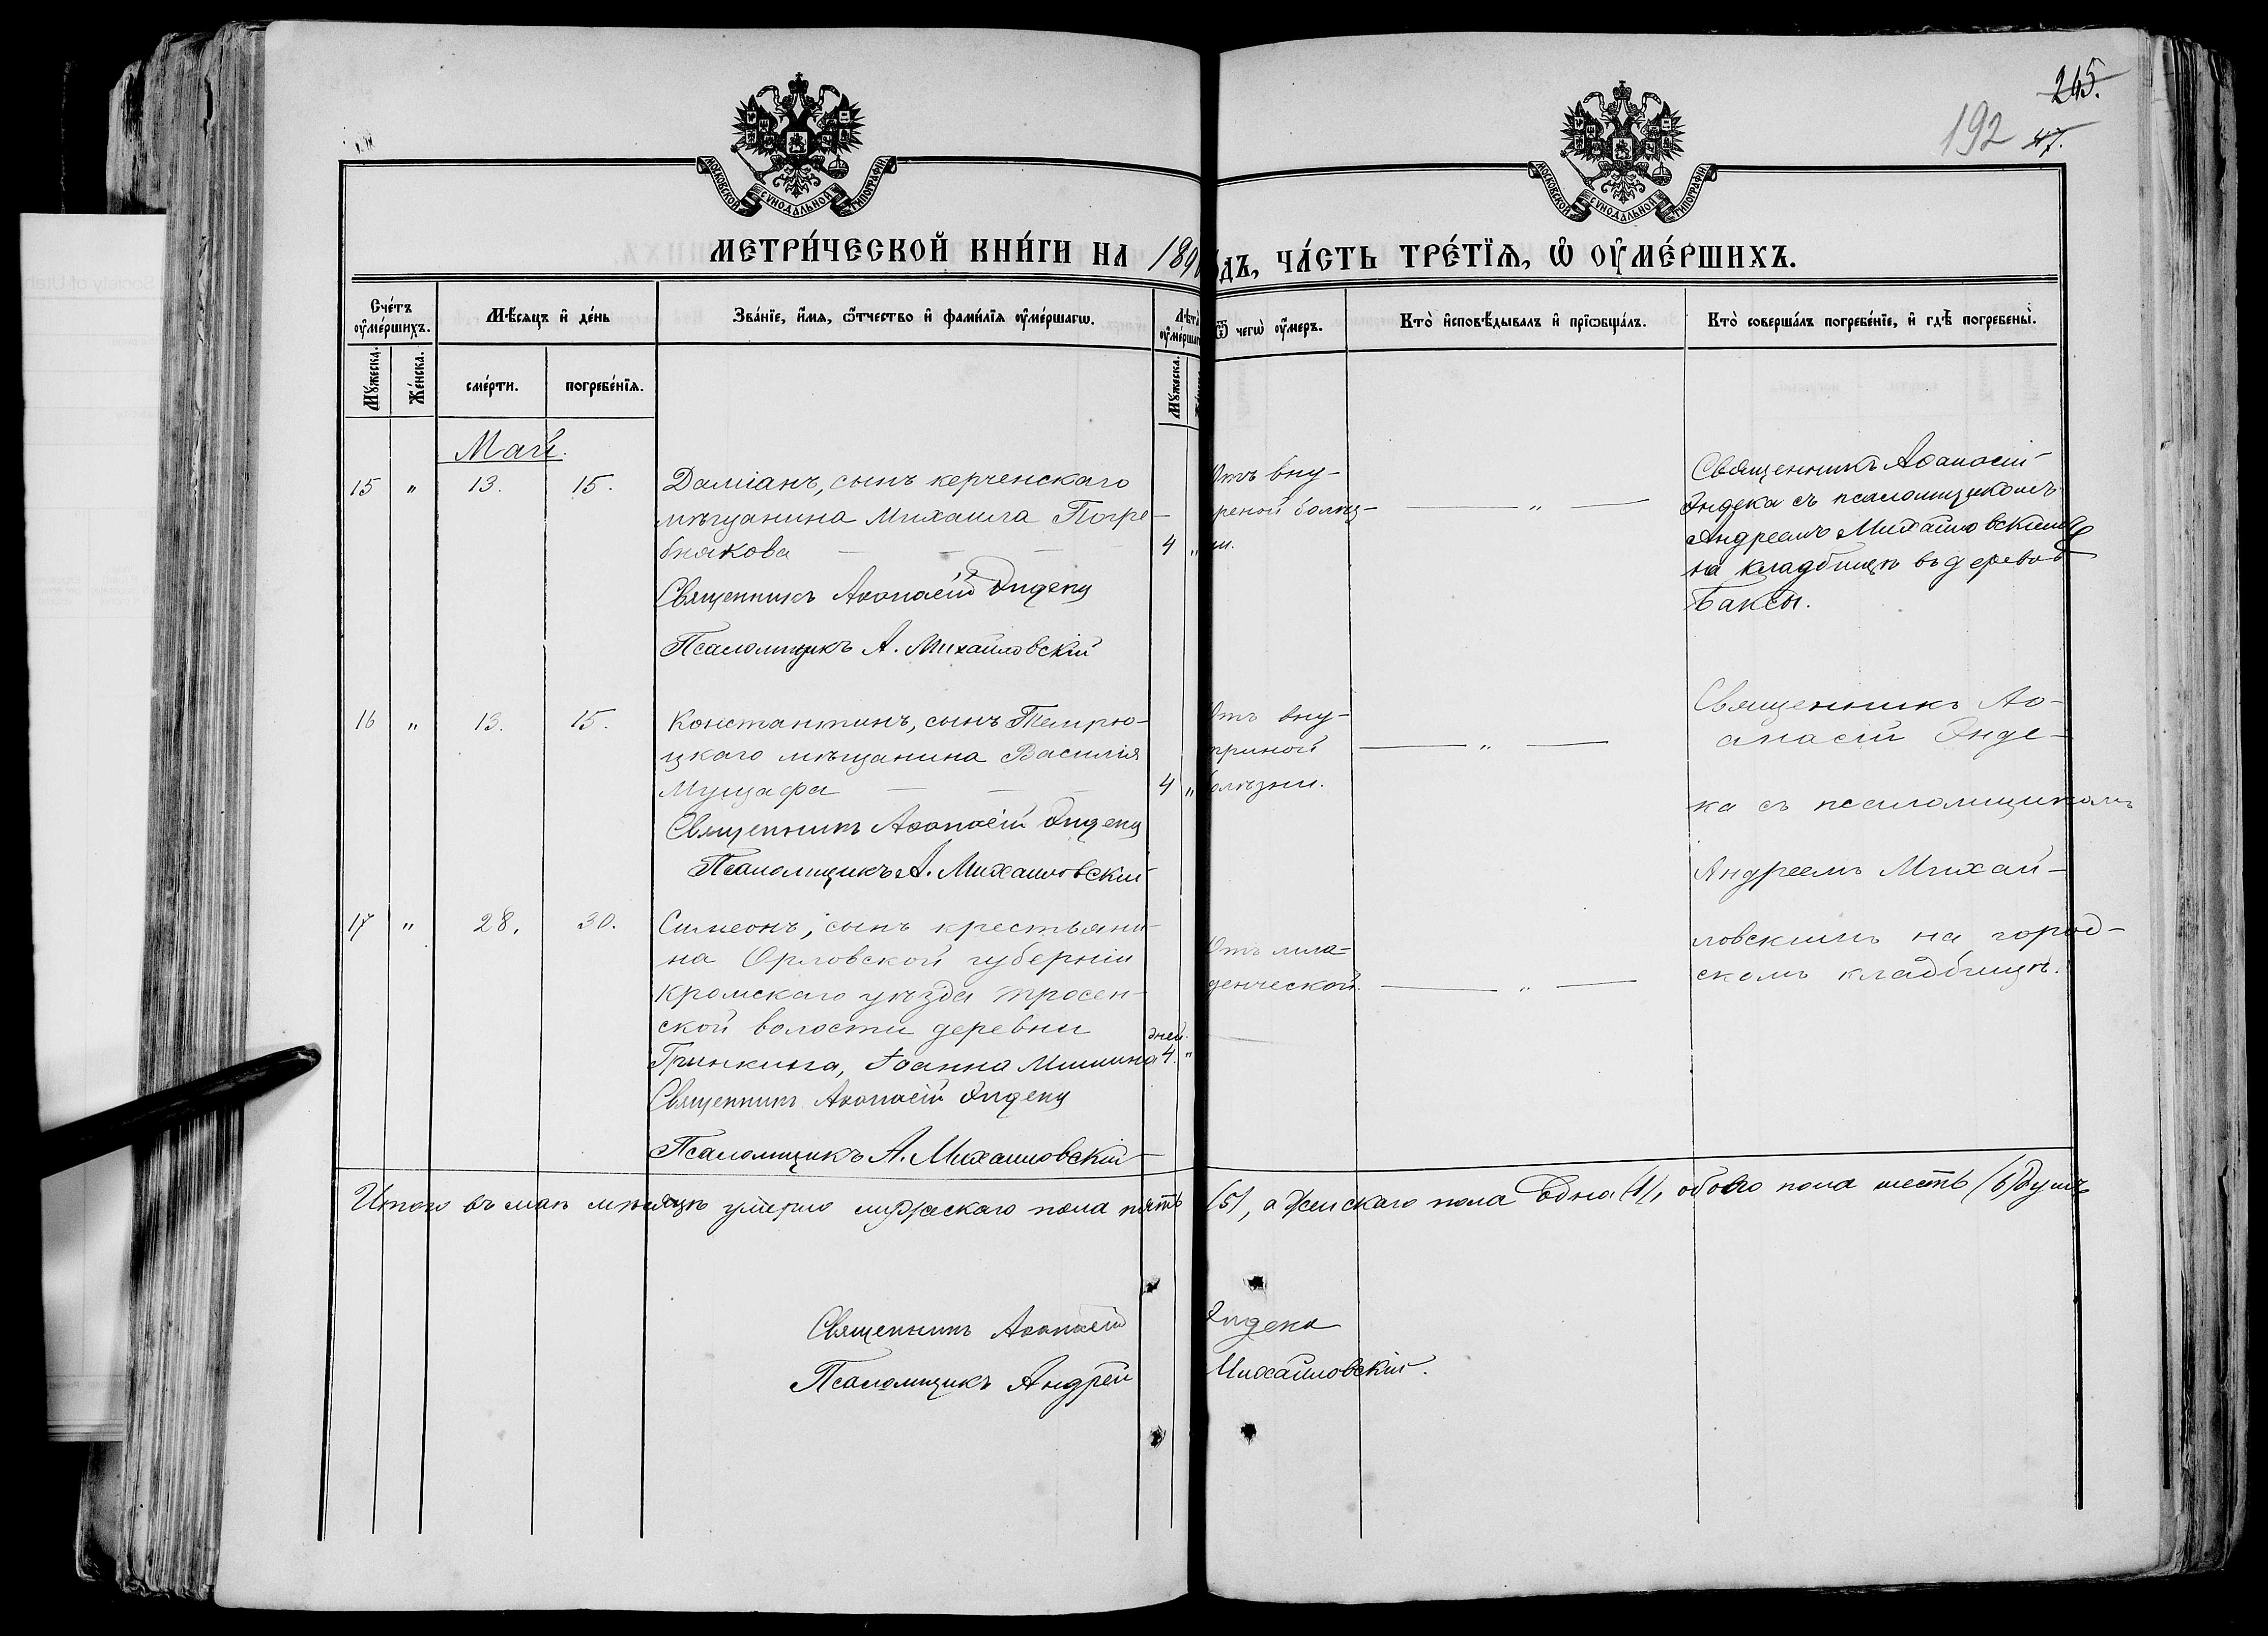 245.
192 47.
МОСКОВСКОЙ СѴНОДАЛЬНОЙ ТИПОГРАФІИ
МОСКОВСКОЙ СѴНОДАЛЬНОЙ ТИПОГРАФІИ
МЕТРИ́ЧЕСКОЙ КНИ́ГИ НА 189 ДЪ, ЧА́СТЬ ТРЕ́ТІѦ, Ѡ҆ ОУ҆МЕ́РШИХЪ.
Сче́тъ оу҆ме́ршихъ.
Мꙋ́жеска.
Же́нска.
Мѣ́сяцъ и҆ де́нь
сме́рти.
погребе́нїѧ.
Зва́нїе, и҆́мѧ, ѻ҆́тчество и҆ фами́лїѧ оу҆ме́ршагѡ.
Лѣт
оу҆ме́ршаг
Мꙋ́жеска.
Ѿ чегѡ̀ оу҆́меръ.
Кто̀ и҆сповѣ́дывалъ и҆ прїѡбща́лъ.
Кто̀ соверша́лъ погребе́нїе, и҆ гдѣ̀ погребены̀.
Май.
15 " 13. 15.
Даміанъ, сынъ керченскаго
мѣщанина Михаила Погре-
бнякова — — — 4 "
Священникъ Аѳанасій Эндека
Псаломщикъ А. Михайловскій
Отъ вну-
реной болѣз-
ни.
— " —
Священникъ Аѳанасій
Эндека съ псаломщикомъ
Андреемъ Михайловскимъ
на кладбищѣ въ деревнѣ
Баксы.
16 " 13. 15.
Константинъ, сынъ Темрю-
цкаго мѣщанина Василія
Мущафа — — — 4 "
Священникъ Аѳанасій Эндека
Псаломщикъ А. Михайловскій
Отъ вну-
триной
болѣзни.
— " —
Священникъ Аѳ-
анасій Энде-
ка съ псаломщикомъ
Андреемъ Михай-
ловскимъ на город-
скомъ кладбищѣ.
17 " 28. 30.
Симеонъ, сынъ крестьяни-
на Орловской губерніи
Кромскаго уѣзда Тросен-
ской волости деревни
Гринкина, Іоанна Мишина
дней.
4. "
Священникъ Аѳанасій Эндека
Псаломщикъ А. Михайловскій
Отъ мла-
денческой.
— " —
Итого въ маѣ мѣсяцѣ умерло мужескаго пола пять (5), а женскаго пола одна (1), обоего пола шесть (6) душъ
Священникъ Аѳанасій Эндека
Псаломщикъ Андрей Михайловскій.